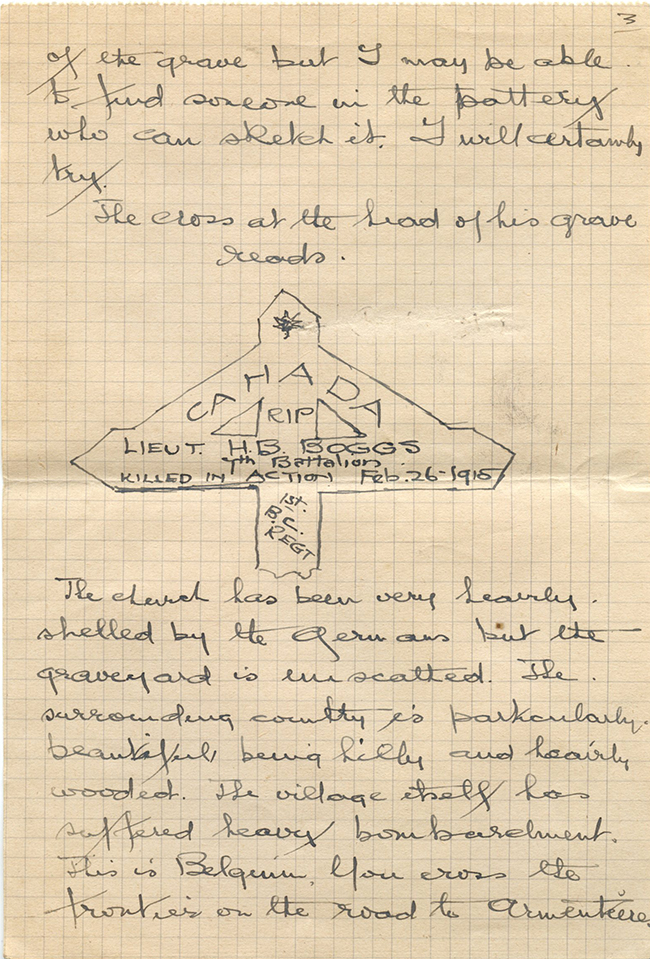 3
of the grave but I may be able
to find someone in the battery
who can sketch it. I will certainly
try.
The cross at the head of his grave
reads.
CANADA
RIP
LIEUT. H.B. BOGGS
7th Battalion
KILLED IN ACTION Feb. 26-1915
1st.
B.C.
REGT
The church has been very heavily.
shelled by the Germans but the
graveyard is unscatted. The.
surrounding country is particularly.
beautiful, being hilly and heavily
wooded. The village itself has
suffered heavy bombardment.
This is Belguim. You cross the
frontier on the road to Armentière.